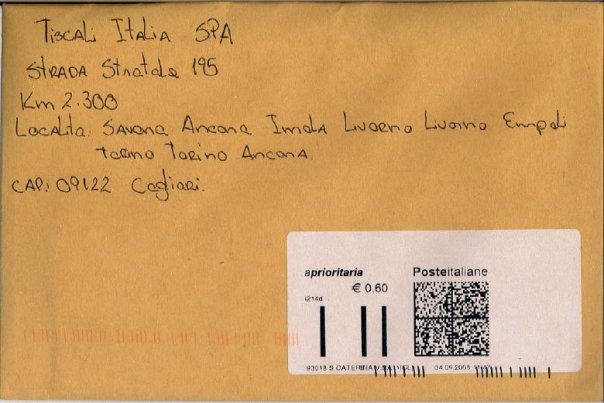 Tiscali Italia SPA
STRADA Statale 195
Km 2.300
Localita: SAVONA Ancona Imola Livorno Livorno Empoli
Torino Torino Ancona.
CAP: 09122 Cagliari.
aprioritaria
Posteitaliane
€ 0,60
93018 S.CATERINA
04.09.2008